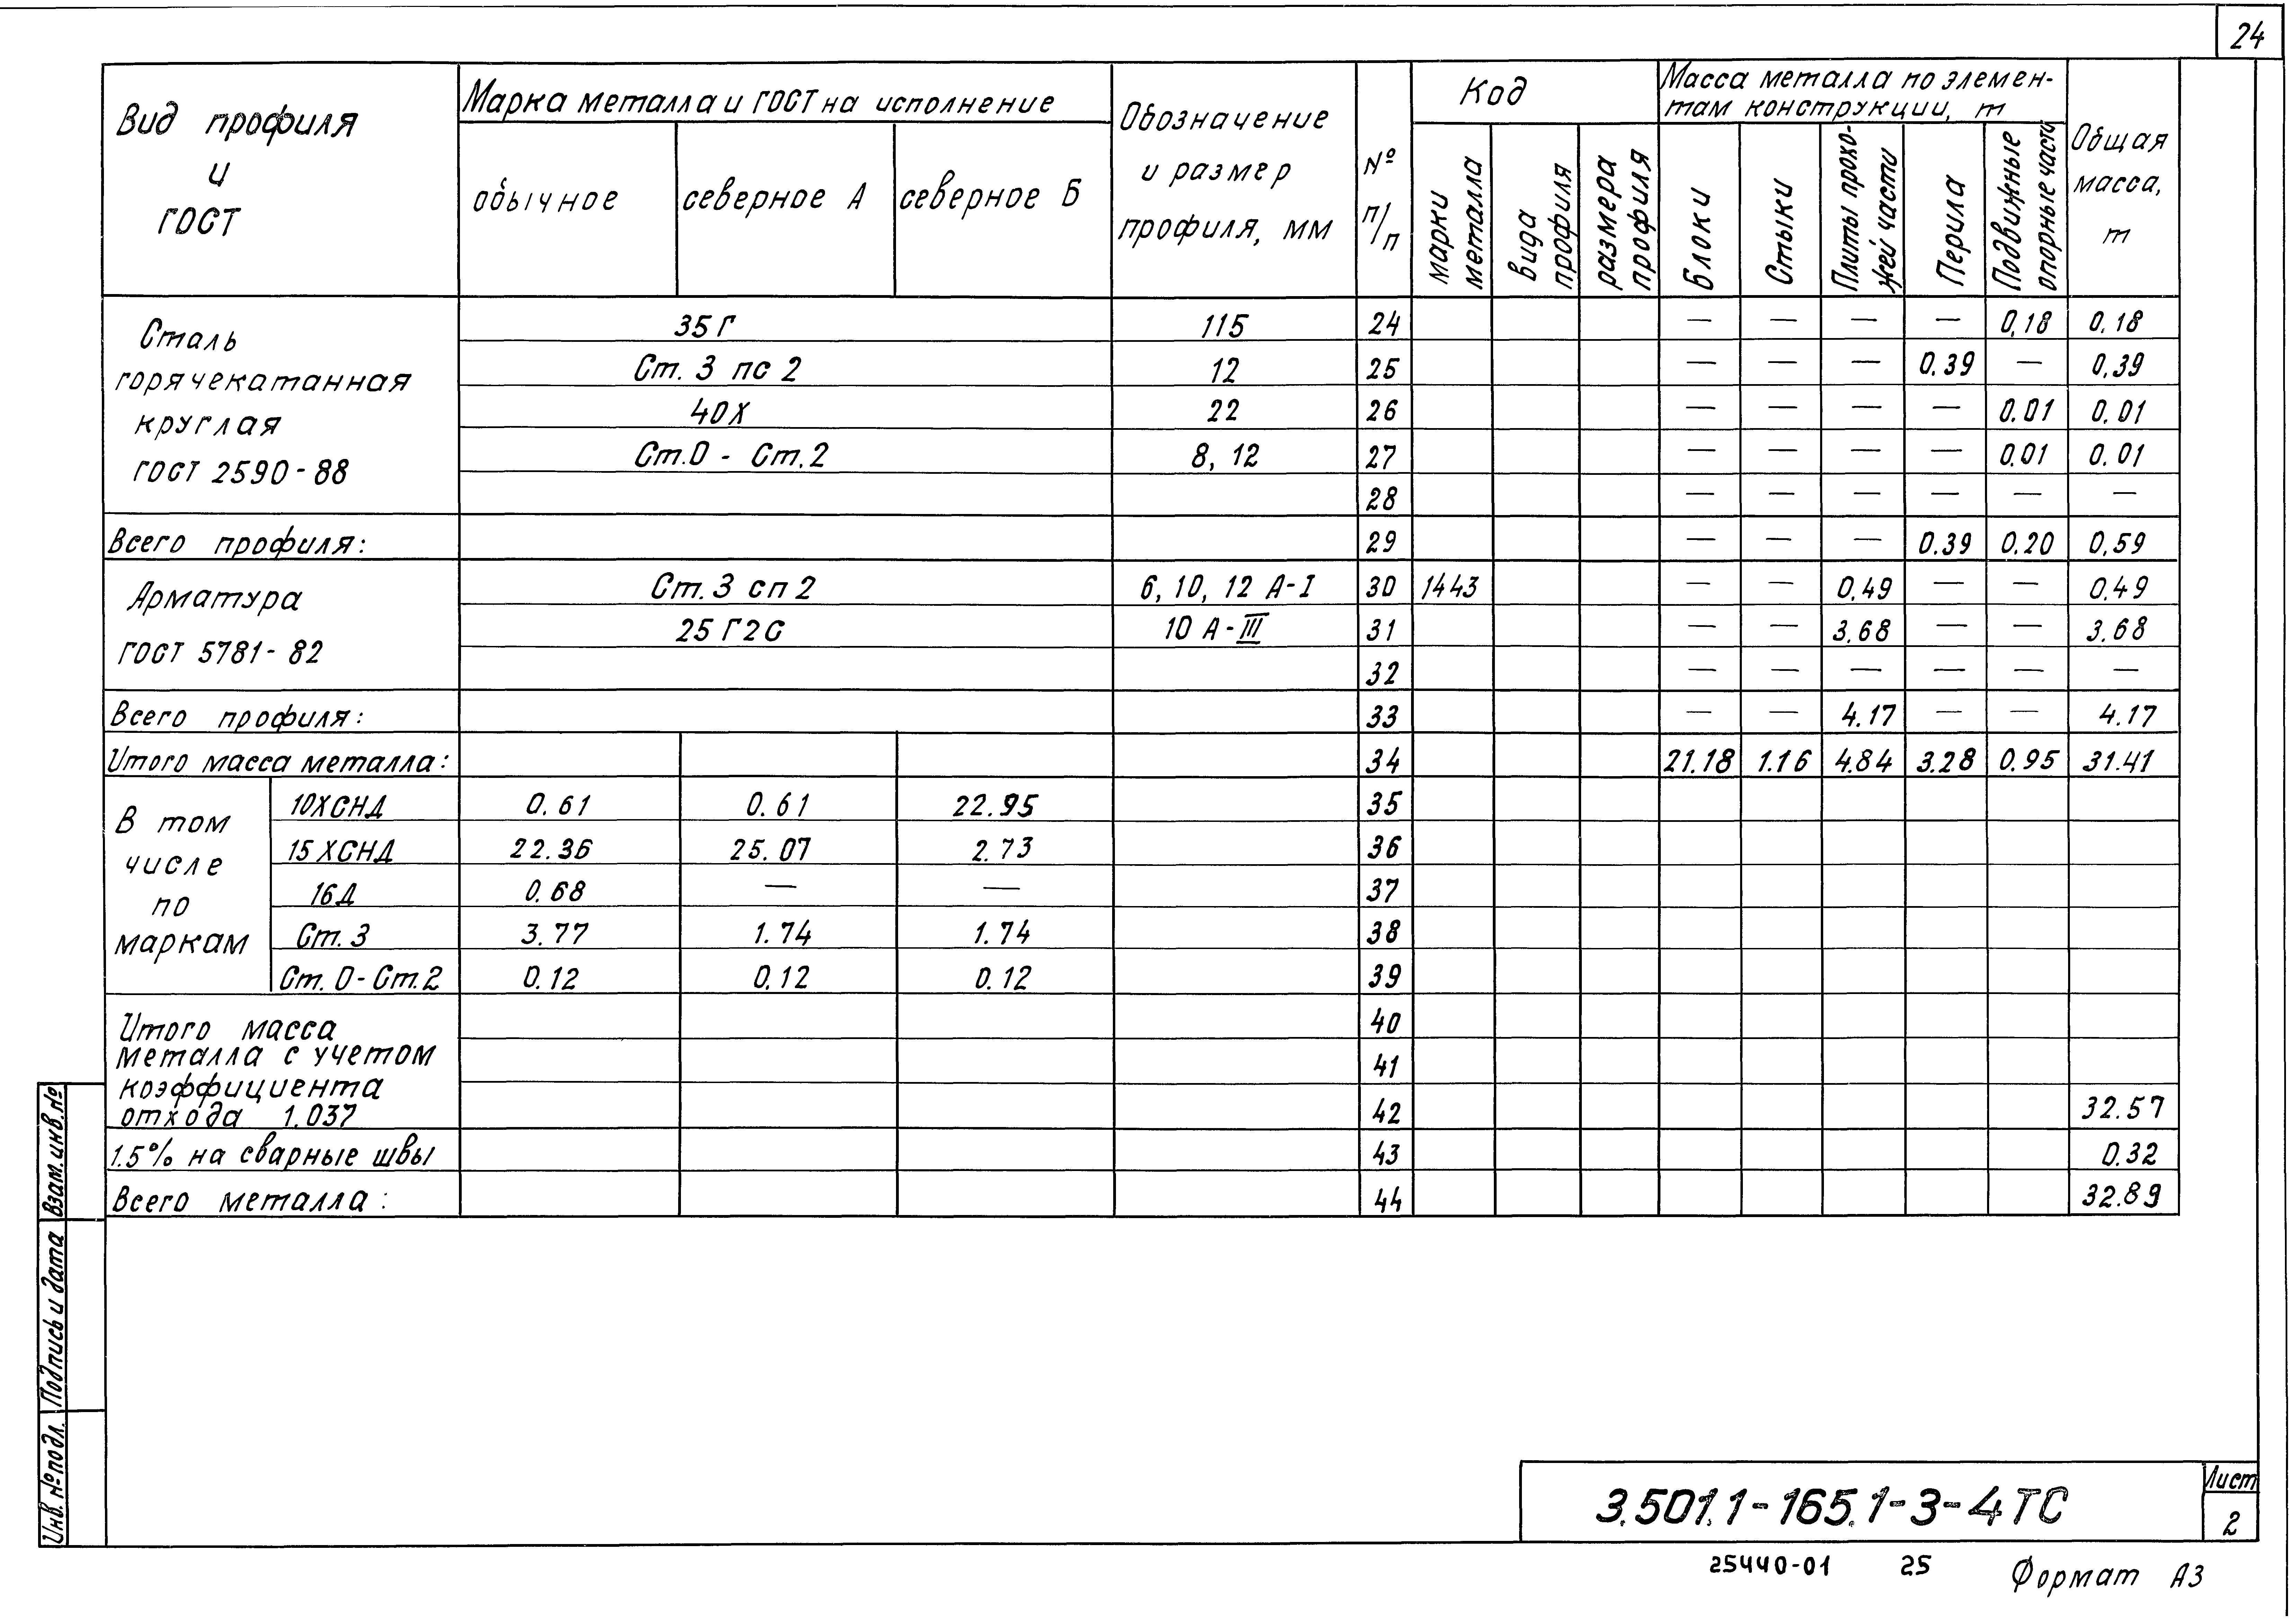 24
Вид профиля и ГОСТ
Марка металла и ГОСТ на исполнение
обычное северное А северное Б
Обозначение и размер профиля, мм
№ п/п
Код
марки металла
вида профиля
размера профиля
Масса металла по элемен-
там конструкции, т
Блоки
Стыки
Плиты проез-
жей части
Перила
Подвижные опорные части
Общая масса, т
Сталь
горячекатанная
круглая
ГОСТ 2590-88
35Г 115 24 — — — — 0,18 0,18
Ст. 3 пс 2 12 25 — — — 0.39 — 0,39
40Х 22 26 — — — — 0.01 0,01
Ст.0 - Ст.2 8, 12 27 — — — — 0.01 0.01
28 — — — — — —
Всего профиля: 29 — — — 0.39 0.20 0,59
Арматура
ГОСТ 5781-82
Ст.3 сп 2 6, 10, 12 А-I 30 1443 — — 0,49 — — 0.49
25Г2С 10 А-III 31 — — 3.68 — — 3.68
32 — — — — — —
Всего профиля: 33 — — 4.17 — — 4.17
Итого масса металла: 34 21.18 1.16 4.84 3.28 0.95 31.41
В том
числе
по
маркам
10ХСНД 0.61 0.61 22.95 35
15ХСНД 22.36 25.07 2.73 36
16Д 0.68 — — 37
Ст. 3 3.77 1.74 1.74 38
Ст. 0-Ст.2 0.12 0.12 0.12 39
Итого масса 40
металла с учетом 41
коэффициента
отхода 1.037 42 32.57
1.5% на сварные швы 43 0.32
Всего металла: 44 32.89
Взам.инв.№
Подпись и дата
Инв. № подл.
3.501.1-165.1-3-4ТС
Лист
2
25440-01 25 Формат А3